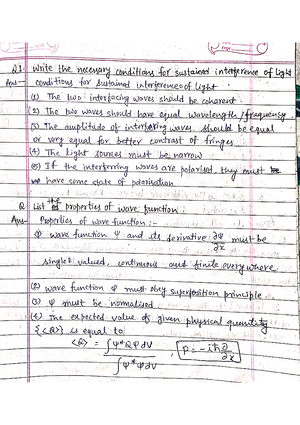 Q1- Write the necessary conditions for sustained interference of light
Ans - conditions for sustained interference of light
(1) The two interfacing waves should be coherent
(2) The two waves should have equal wavelength/frequency
(3) The amplitude of interfering waves should be equal
or very equal for better contrast of fringes
(4) The light sources must be narrow
(5) If the interferring waves are polarised, they must
have some state of polarisation
Q List the properties of wave function
Ans- Poperties of wave function :-
(1) wave function Ψ and its derivative ∂Ψ/∂x must be
single valued, continuous and finite everywhere
(2) wave function Ψ must obey superposition principle
(3) Ψ must be normalised
(4) The expected value of given physical quantity
{<Q>} is equal to
<Q> = ∫Ψ*QΨdV / ∫Ψ*ΨdV , P = -iħ ∂/∂x